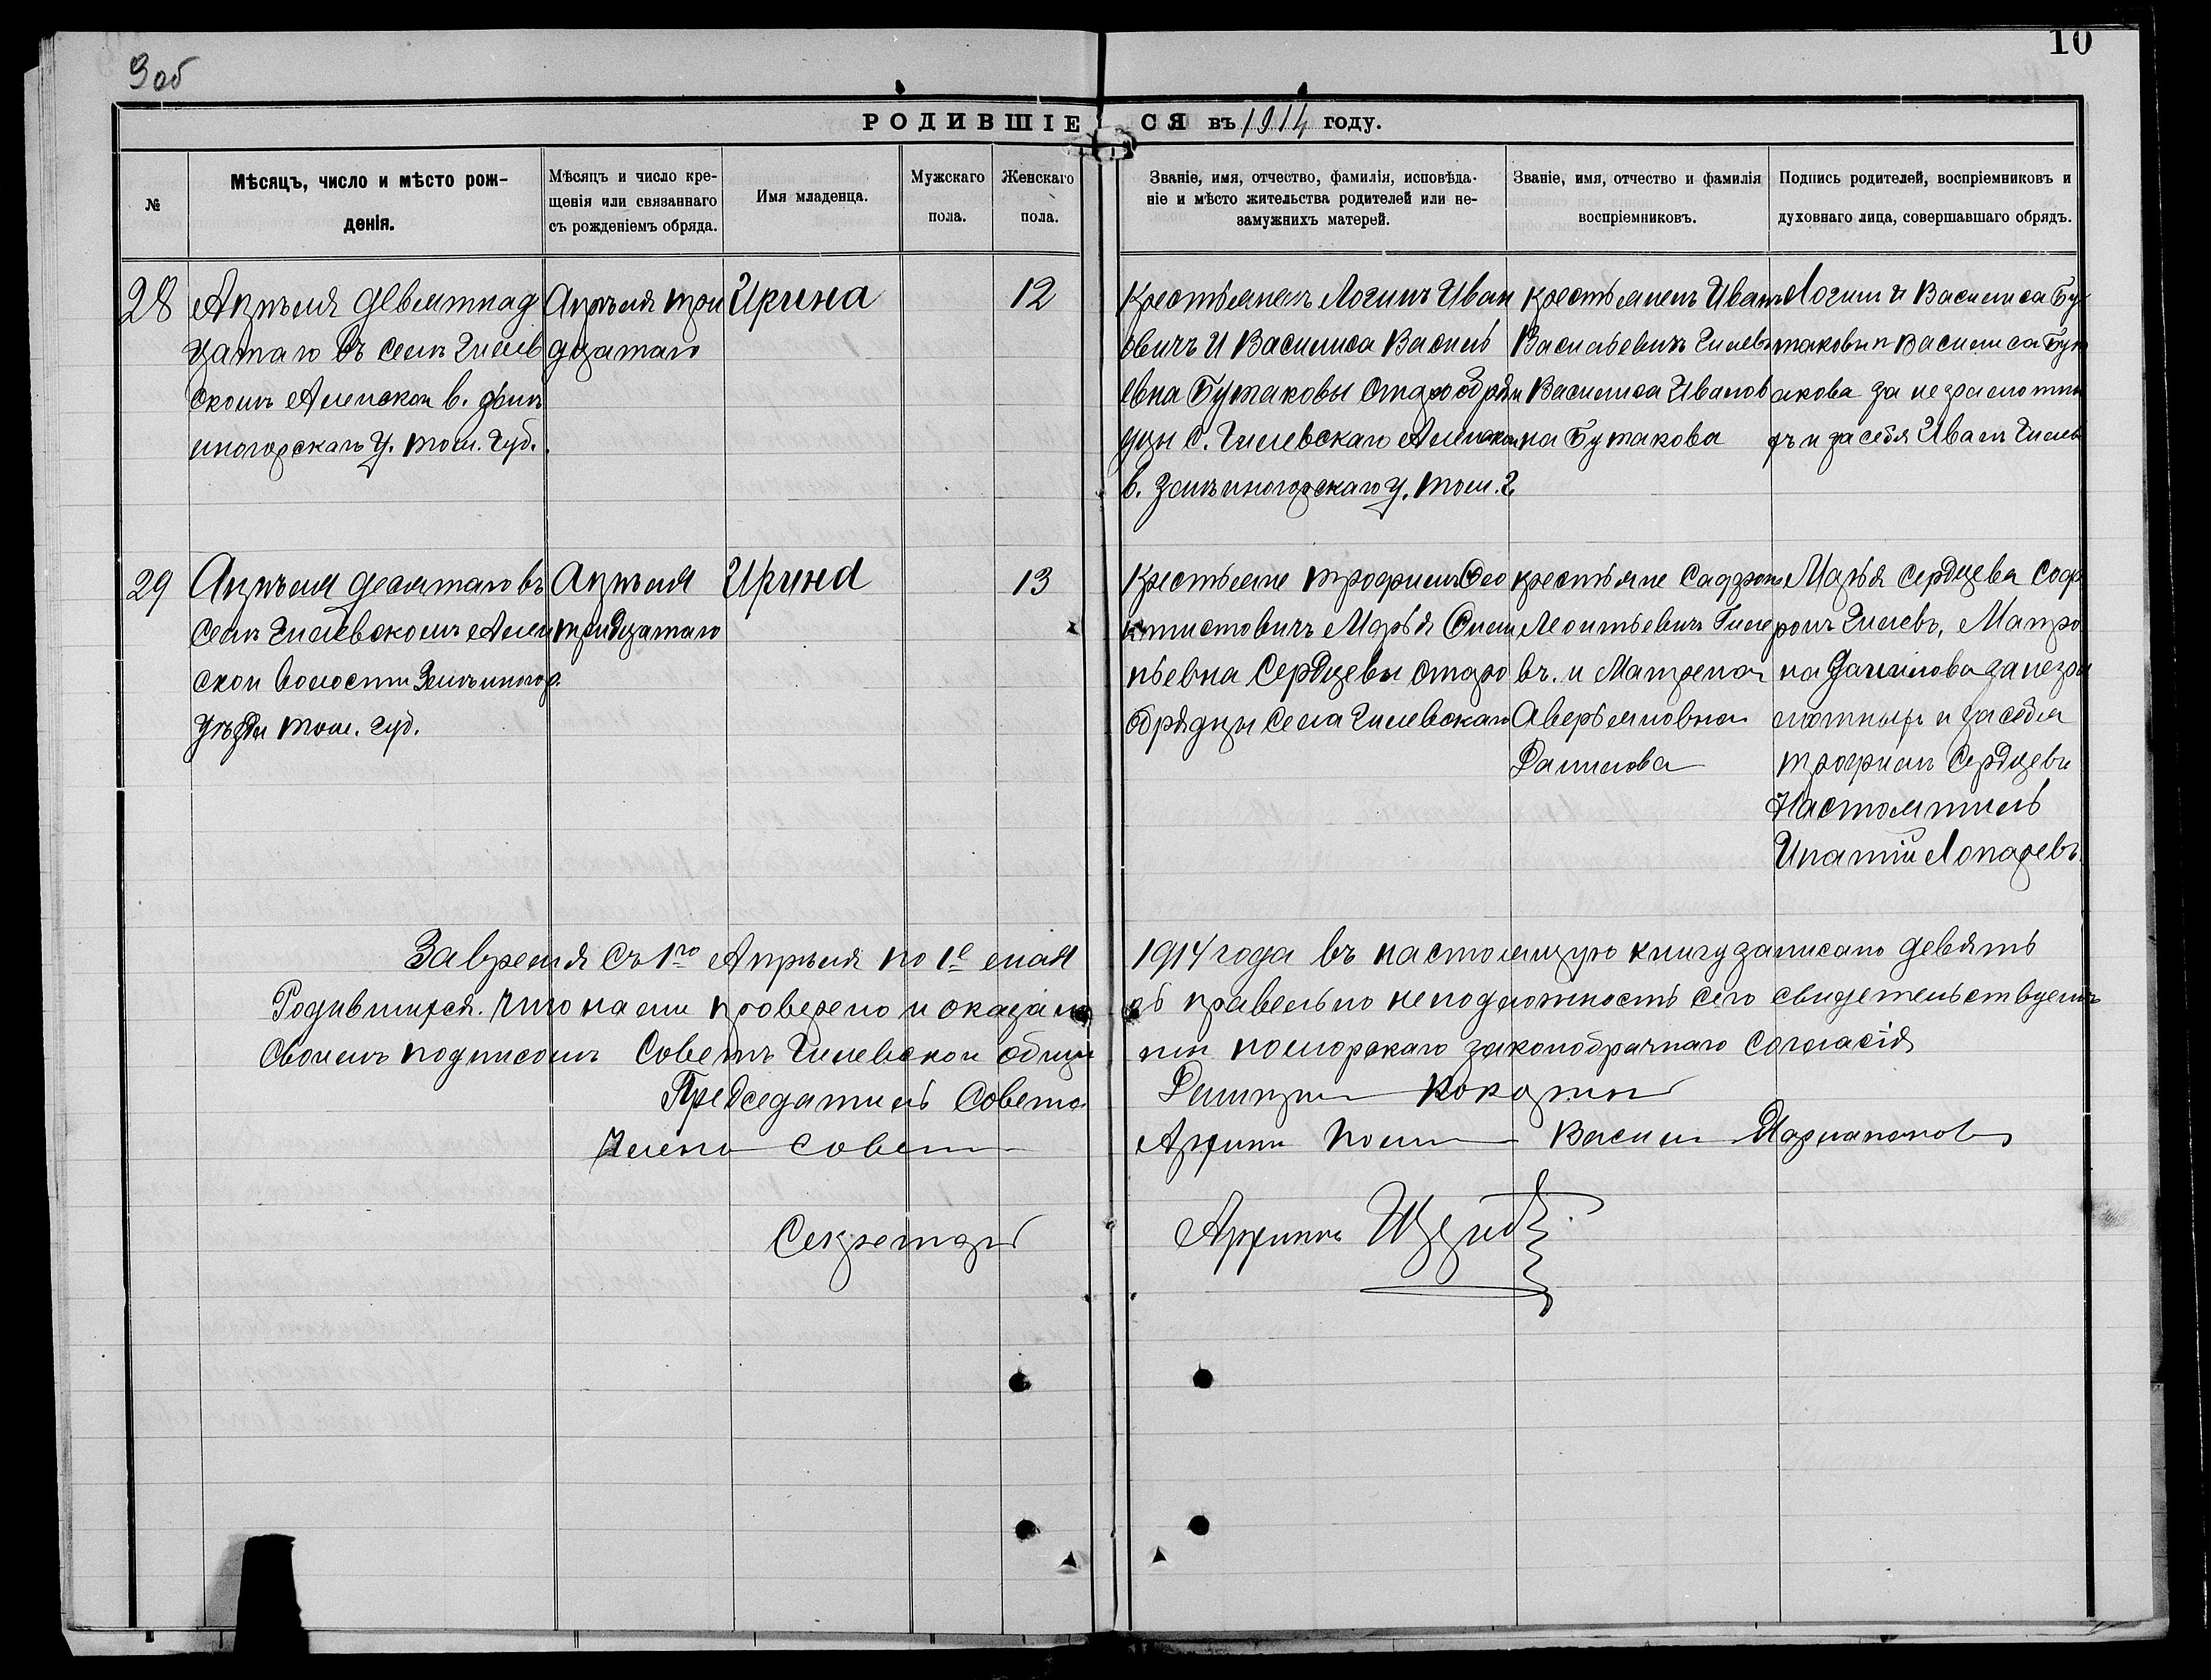 9 об
10
РОДИВШІЕСЯ въ 1914 году.
№
Мѣсяцъ, число и мѣсто рож-
денія.
Мѣсяцъ и число кре-
щенія или связаннаго
съ рожденіемъ обряда.
Имя младенца.
Мужскаго
пола.
Женскаго
пола.
Званіе, имя, отчество, фамилія, исповѣда-
ніе и мѣсто жительства родителей или не-
замужнихъ матерей.
Званіе, имя, отчество и фамилія
воспріемниковъ.
Подпись родителей, воспріемниковъ и
духовнаго лица, совершавшаго обрядъ.
28
Апрѣля девятнад
цатаго въ селѣ Гилев
скомъ Алейской в. Змѣи
ногорскаго у. Том. Губ.
Апрѣля три
дцатаго
Ирина
12
Крестьянетъ Логинъ Иван
овичъ И Василиса Василь
евна Бутаковы Старообряд
цы с. Гилевскаго Алейской
в. Змѣиногорскаго у. Том. г.
крестьянетъ Иванъ
Васильевичъ Гилевъ
и Василиса Иванов
на Бутакова
Логин и Василиса Бу
таковы и Василиса Бут
акова за неграмотны
хъ и за себя Иван Гилев
29
Апрѣля десятаго въ
Селѣ Гилевскомъ Алей
ской волости Змѣиногор.
уѣзда Том. губ.
Апрѣля
тридцатаго
Ирина
13
Крестьяне Трофимъ Фео
ктистовичъ Марья Филип
пьевна Сердцевы старо
обрядцы Села Гилевскаго
крестьяне Сафрон
Леонтьевич Гиле
въ. и Матрена
Аверьяновна
Данилова
Марья Сердцева Соф
ронъ Гилевъ, Матре
на Данилова за негра
мотных и за себя
трофимъ Сердцевъ
Настоятель
Ипатій Лопаревъ
За время Съ 1го Апрѣля по 1е мая 1914 года въ настоящую книгу записано девять
Родившихся. что нами проверено и оказалось правельно неподложность сего свидетельствуемъ
Своимъ подписомъ Советъ Гилевской общины поморскаго законобрачнаго Согласія
Председатель Совета
Члены Совета
Василий
Секретарь